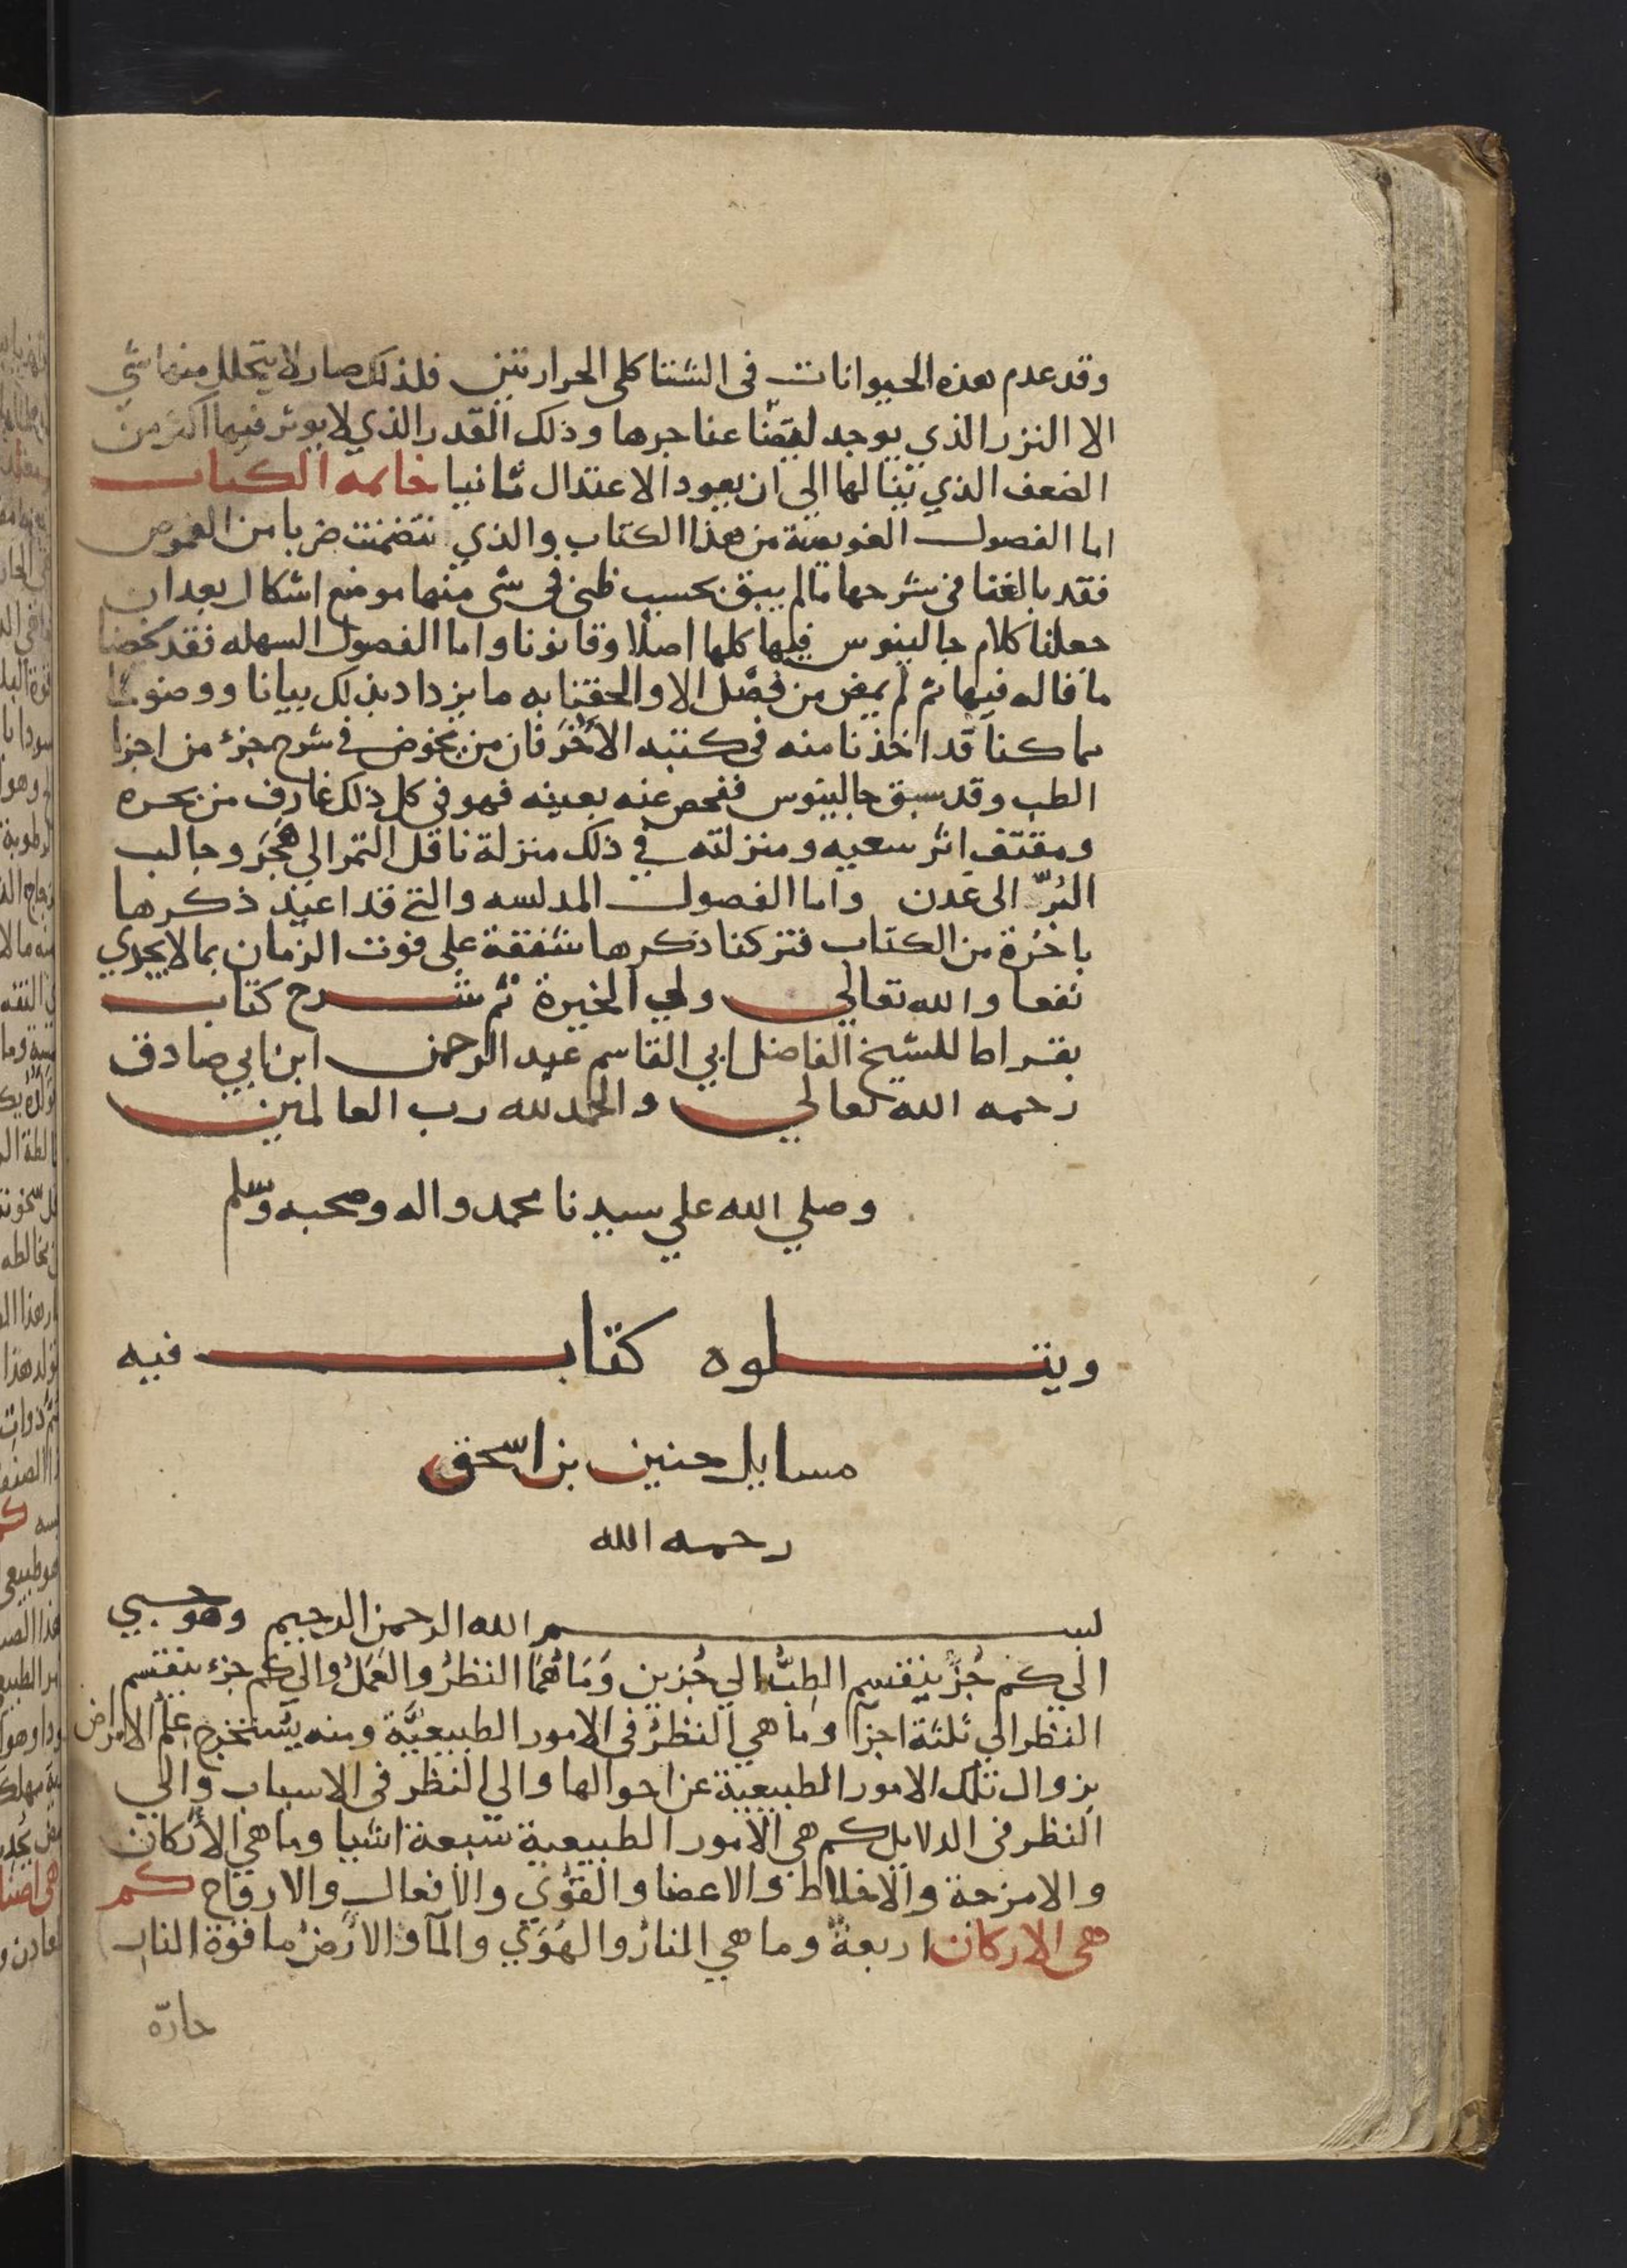 وقد عدم هذه الحيوانات في الشتا كلى الحرارتين فلذلك صار لا يتحلل منها شي
الا النزر الذي يوجد لبعضنا عناجرها وذلك القدر الذي لا يوثر فيها اكثر من
الضعف الذي ينالها الي ان يعود الاعتدال ثانيا خاتمه الكتاب
اما الفصول العويصة من هذا الكتاب والذي تتضمنت ضربا من الغموض
فقد بالغنا في شرحها ما لم يبق بحسب ظني في شي منها موضع اشكال بعد ان
جعلنا كلام جالينوس فيها كلها اصلا وقانونا واما الفصول السهله فقد لخصنا
ما قاله فيها ثم لم يمض من فصل الا والحقنا به ما يزداد بذلك بيانا ووضوحا
مما كنا قد اخذنا منه في كتبه الاخر فان من يخوض في شرح جزء من اجزا
الطب وقد سبق جالينوس ففحص عنه بعينه فهو في كل ذلك غارف من بحره
ومقتف اثر سعيه ومنزلته في ذلك منزلة ناقل التمر الي هجر وجالب
البُرّ الى عدن واما الفصول المدلسه والتي قد اعيد ذكرها
باخرة من الكتاب فتركنا ذكرها شفقة علي فوت الزمان بما لا يجدي
نفعا والله تعالي ولي الخيرة تم شرح كتاب
بقراط للشيخ الفاضل ابي القاسم عبد الرحمن ابن ابي صادق
رحمه الله تعالي والحمد لله رب العالمين
وصلي الله علي سيدنا محمد واله وصحبه وسلم
ويتلوه كتاب فيه
مسايل حنين بن اسحق
رحمه الله
بسم الله الرحمن الرحيم وهو حسبي
الي كم جُزءٍ ينقسم الطبُّ الي جُزين وَمَا هُمَا النظرُ والعَمَلُ والي كم جزء ينقسم
النظر الي ثلثة اجزآ وما هي النظرُ في الامور الطبيعيَّة ومنه يُستخرج علم الامراض
بزوال تلك الامور الطبيعية عن احوالها والي النظر في الاسباب والي
النظر في الدلايل كم هي الامور الطبيعية سَبعة اشيا وما هي الأركان
والامزجة والاخلاط والاعضا والقُوي والأفعال والارواح كم
هي الاركان اربعةٌ وما هي النارُ والهَوَي والمآ والارضُ ما قوة النار
حارّه